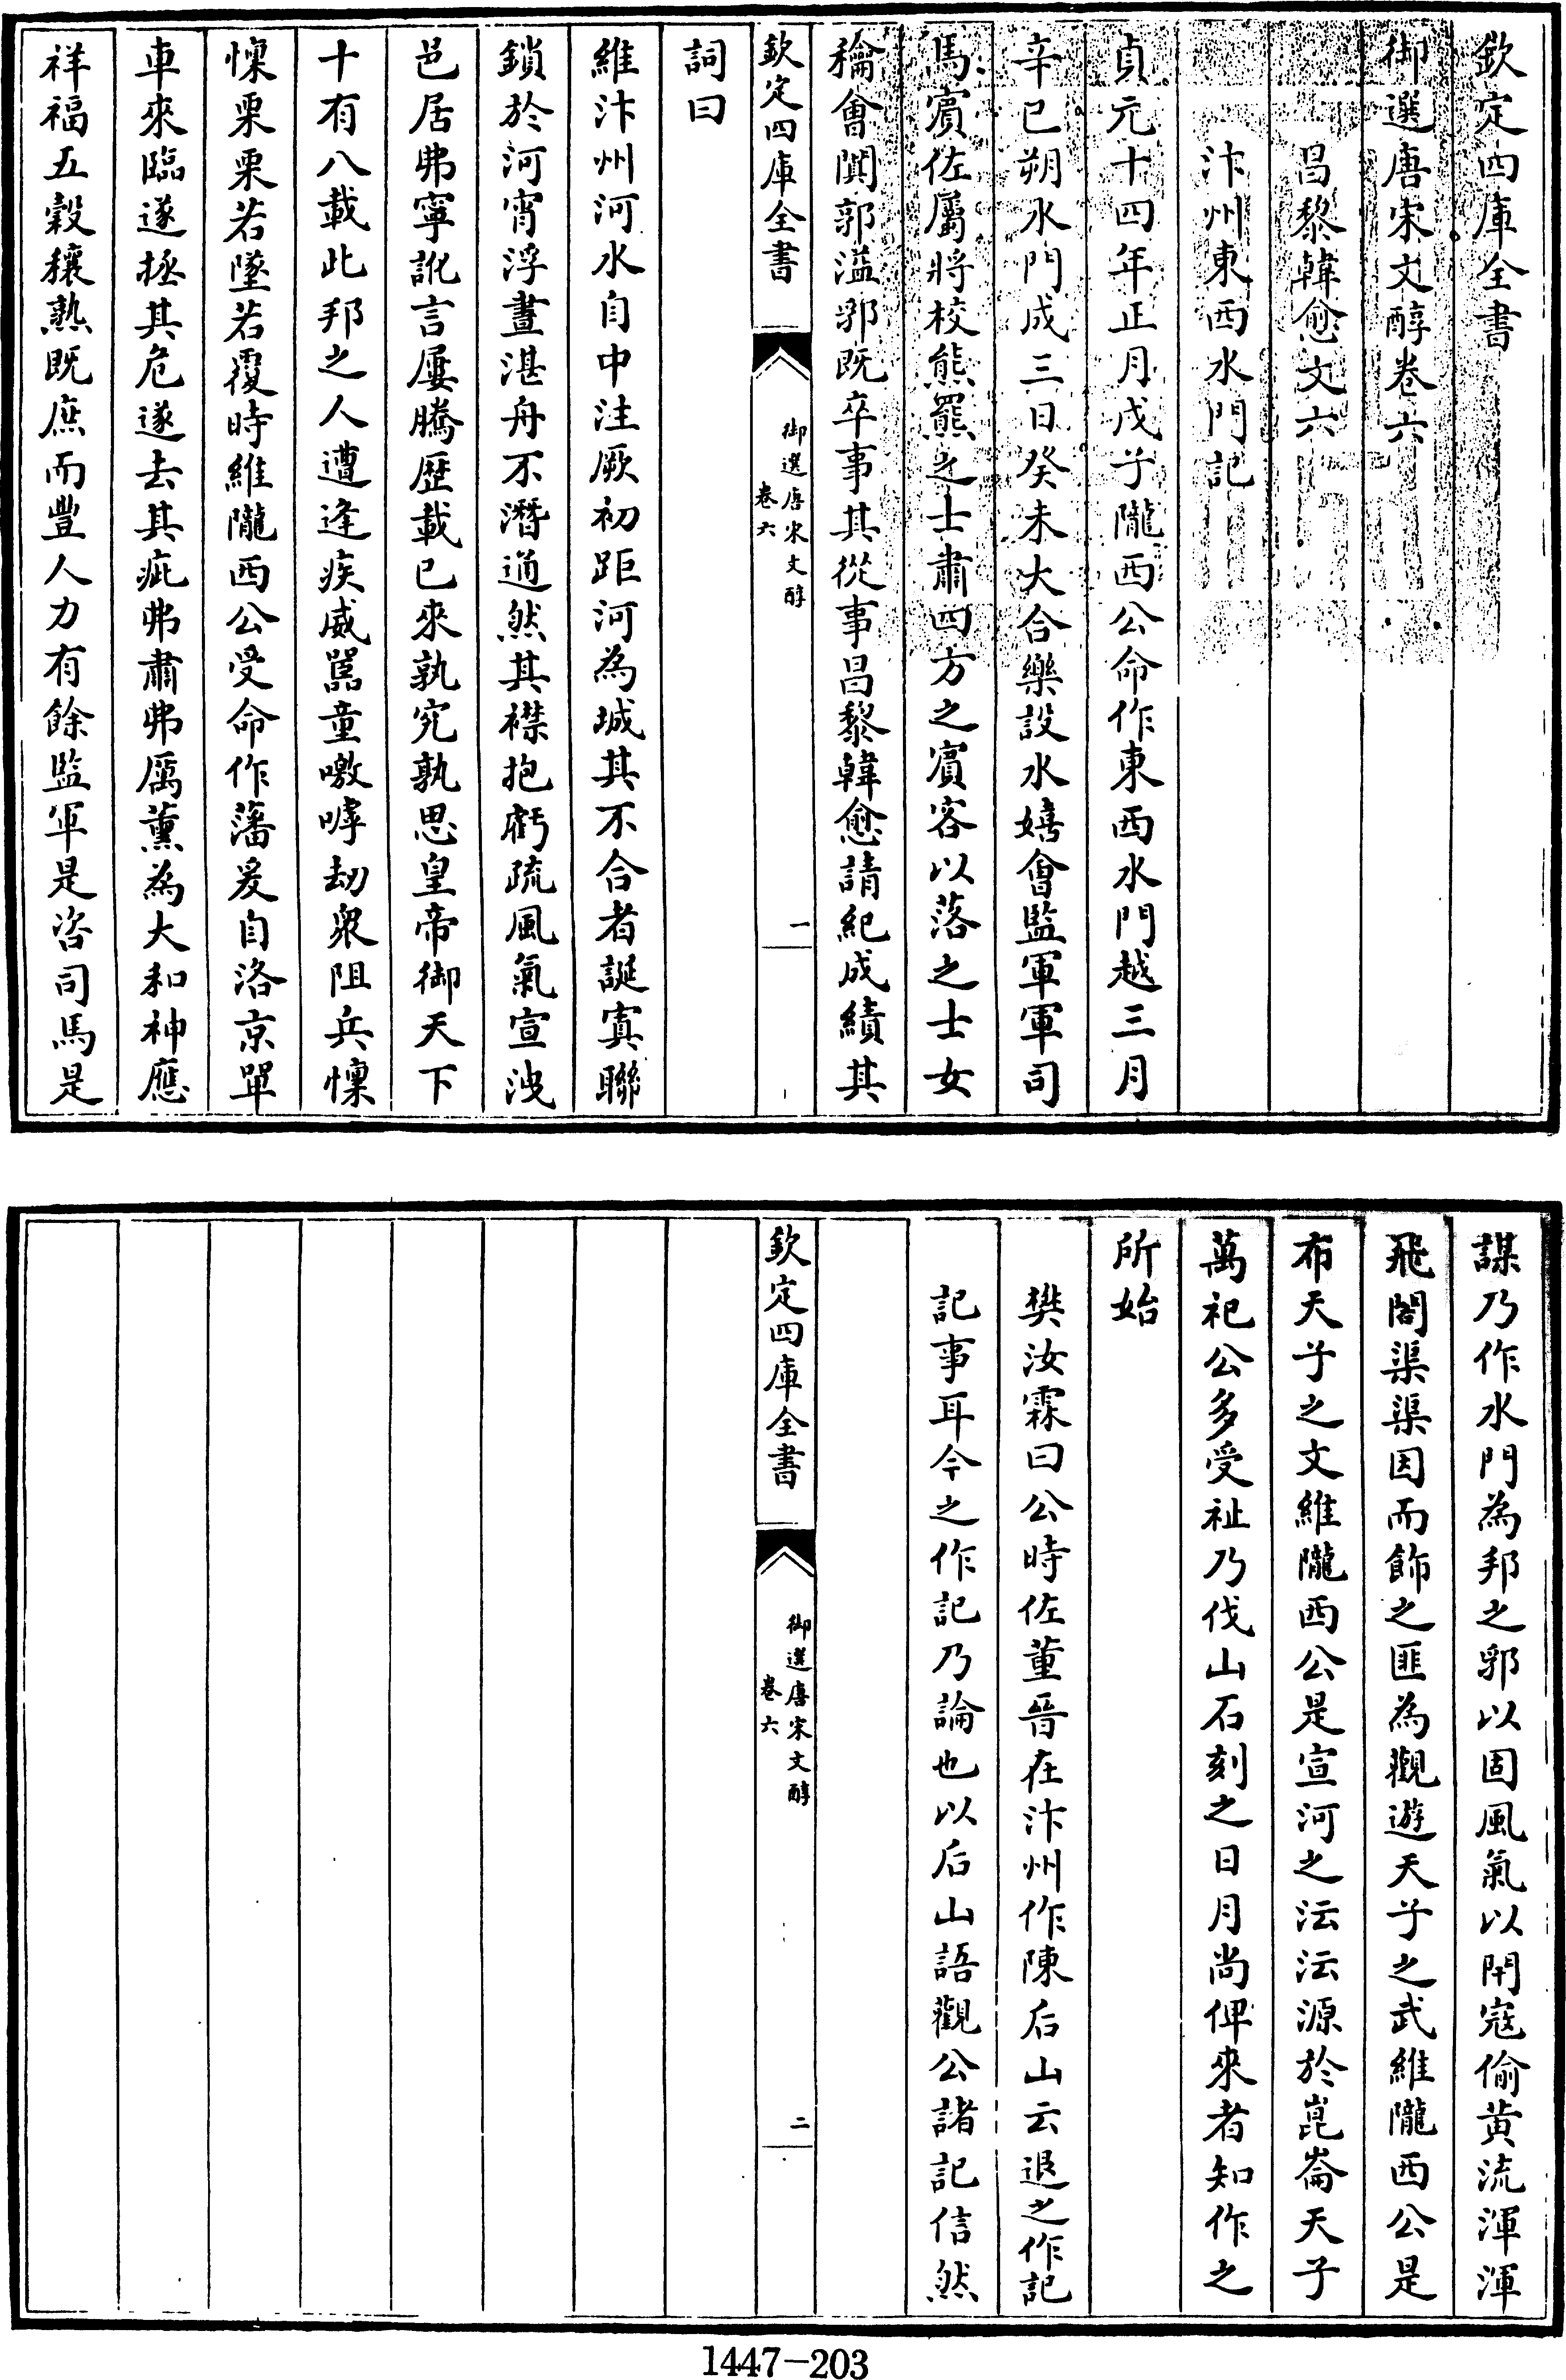 欽定四庫全書
御選唐宋文醇卷六
昌黎韓愈文六
汴州東西水門記
貞元十四年正月戊子隴西公命作東西水門越三月
辛巳朔水門成三日癸未大合樂設水嬉會監軍軍司
馬賔佐屬將校熊羆之士肅四方之賔客以落之士女
龢會闐郭溢郛既卒事其從事昌黎韓愈請紀成績其
欽定四庫全書
御選唐宋文醇
卷六
一
詞曰
維汴州河水自中注厥初距河為城其不合者誕寘聯
鎖於河宵浮晝湛舟不潛通然其襟抱虧疏風氣宣洩
邑居弗寧訛言屢騰歴載已來孰究孰思皇帝御天下
十有八載此邦之人遭逢疾威嚚童噭嘑刼衆阻兵懍
懍栗栗若墜若覆時維隴西公受命作藩爰自洛京單
車來臨遂拯其危遂去其疵弗肅弗厲薰為大和神應
祥福五穀穰熟既庶而豐人力有餘監軍是咨司馬是
謀乃作水門為邦之郛以固風氣以閈寇偷黄流渾渾
飛閣渠渠因而飾之匪為觀遊天子之武維隴西公是
布天子之文維隴西公是宣河之沄沄源於崑崙天子
萬祀公多受祉乃伐山石刻之日月尚俾來者知作之
所始
樊汝霖曰公時佐董晉在汴州作陳后山云退之作記
記事耳今之作記乃論也以后山語觀公諸記信然
欽定四庫全書
御選唐宋文醇
卷六
二
1447-203